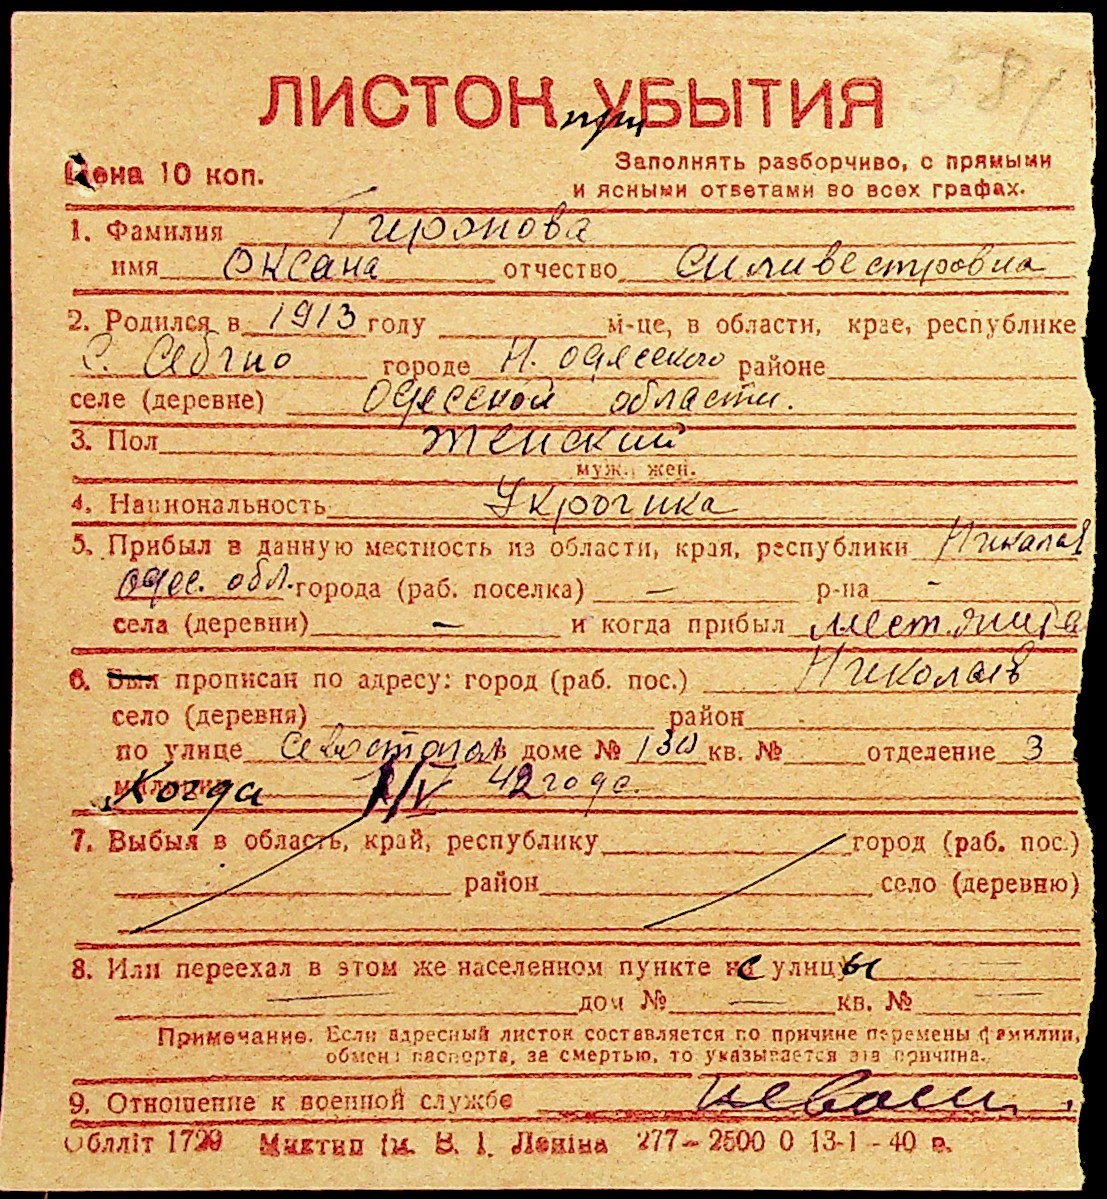 581
ЛИСТОК при УБЫТИЯ
Цена 10 коп.
Заполнять разборчиво, с прямыми
и ясными ответами во всех графах.
1. Фамилия Гиронова
имя Оксана отчество Силивестровна
2. Родился в 1913 году м-це, в области, крае, республике
с. Себгно городе Н. Одесского районе
селе (деревне) Одесской области.
3. Пол Женский
муж., жен.
4. Национальность Украинка
5. Прибыл в данную местность из области, края, республики Николаев
Одес. обл. города (раб. поселка) — р-на -
села (деревни) - и когда прибыл
6. Был прописан по адресу: город (раб. пос.) Николаев
село (деревня) район
по улице Севастопол в доме № 130 кв. № отделение 3
милиции Когда 1/IV 42 года.
7. Выбыл в область, край, республику город (раб. пос.)
район село (деревню)
8. Или переехал в этом же населенном пункте с улицы
дом № — кв. № —
Примечание. Если адресный листок составляется по причине перемены фамилии,
обмена паспорта, за смертью, то указывается эта причина.
9. Отношение к военной службе невоен.
Облліт 1729 Миктип ім. В. І. Леніна 277—2500 0 13-1-40 в.